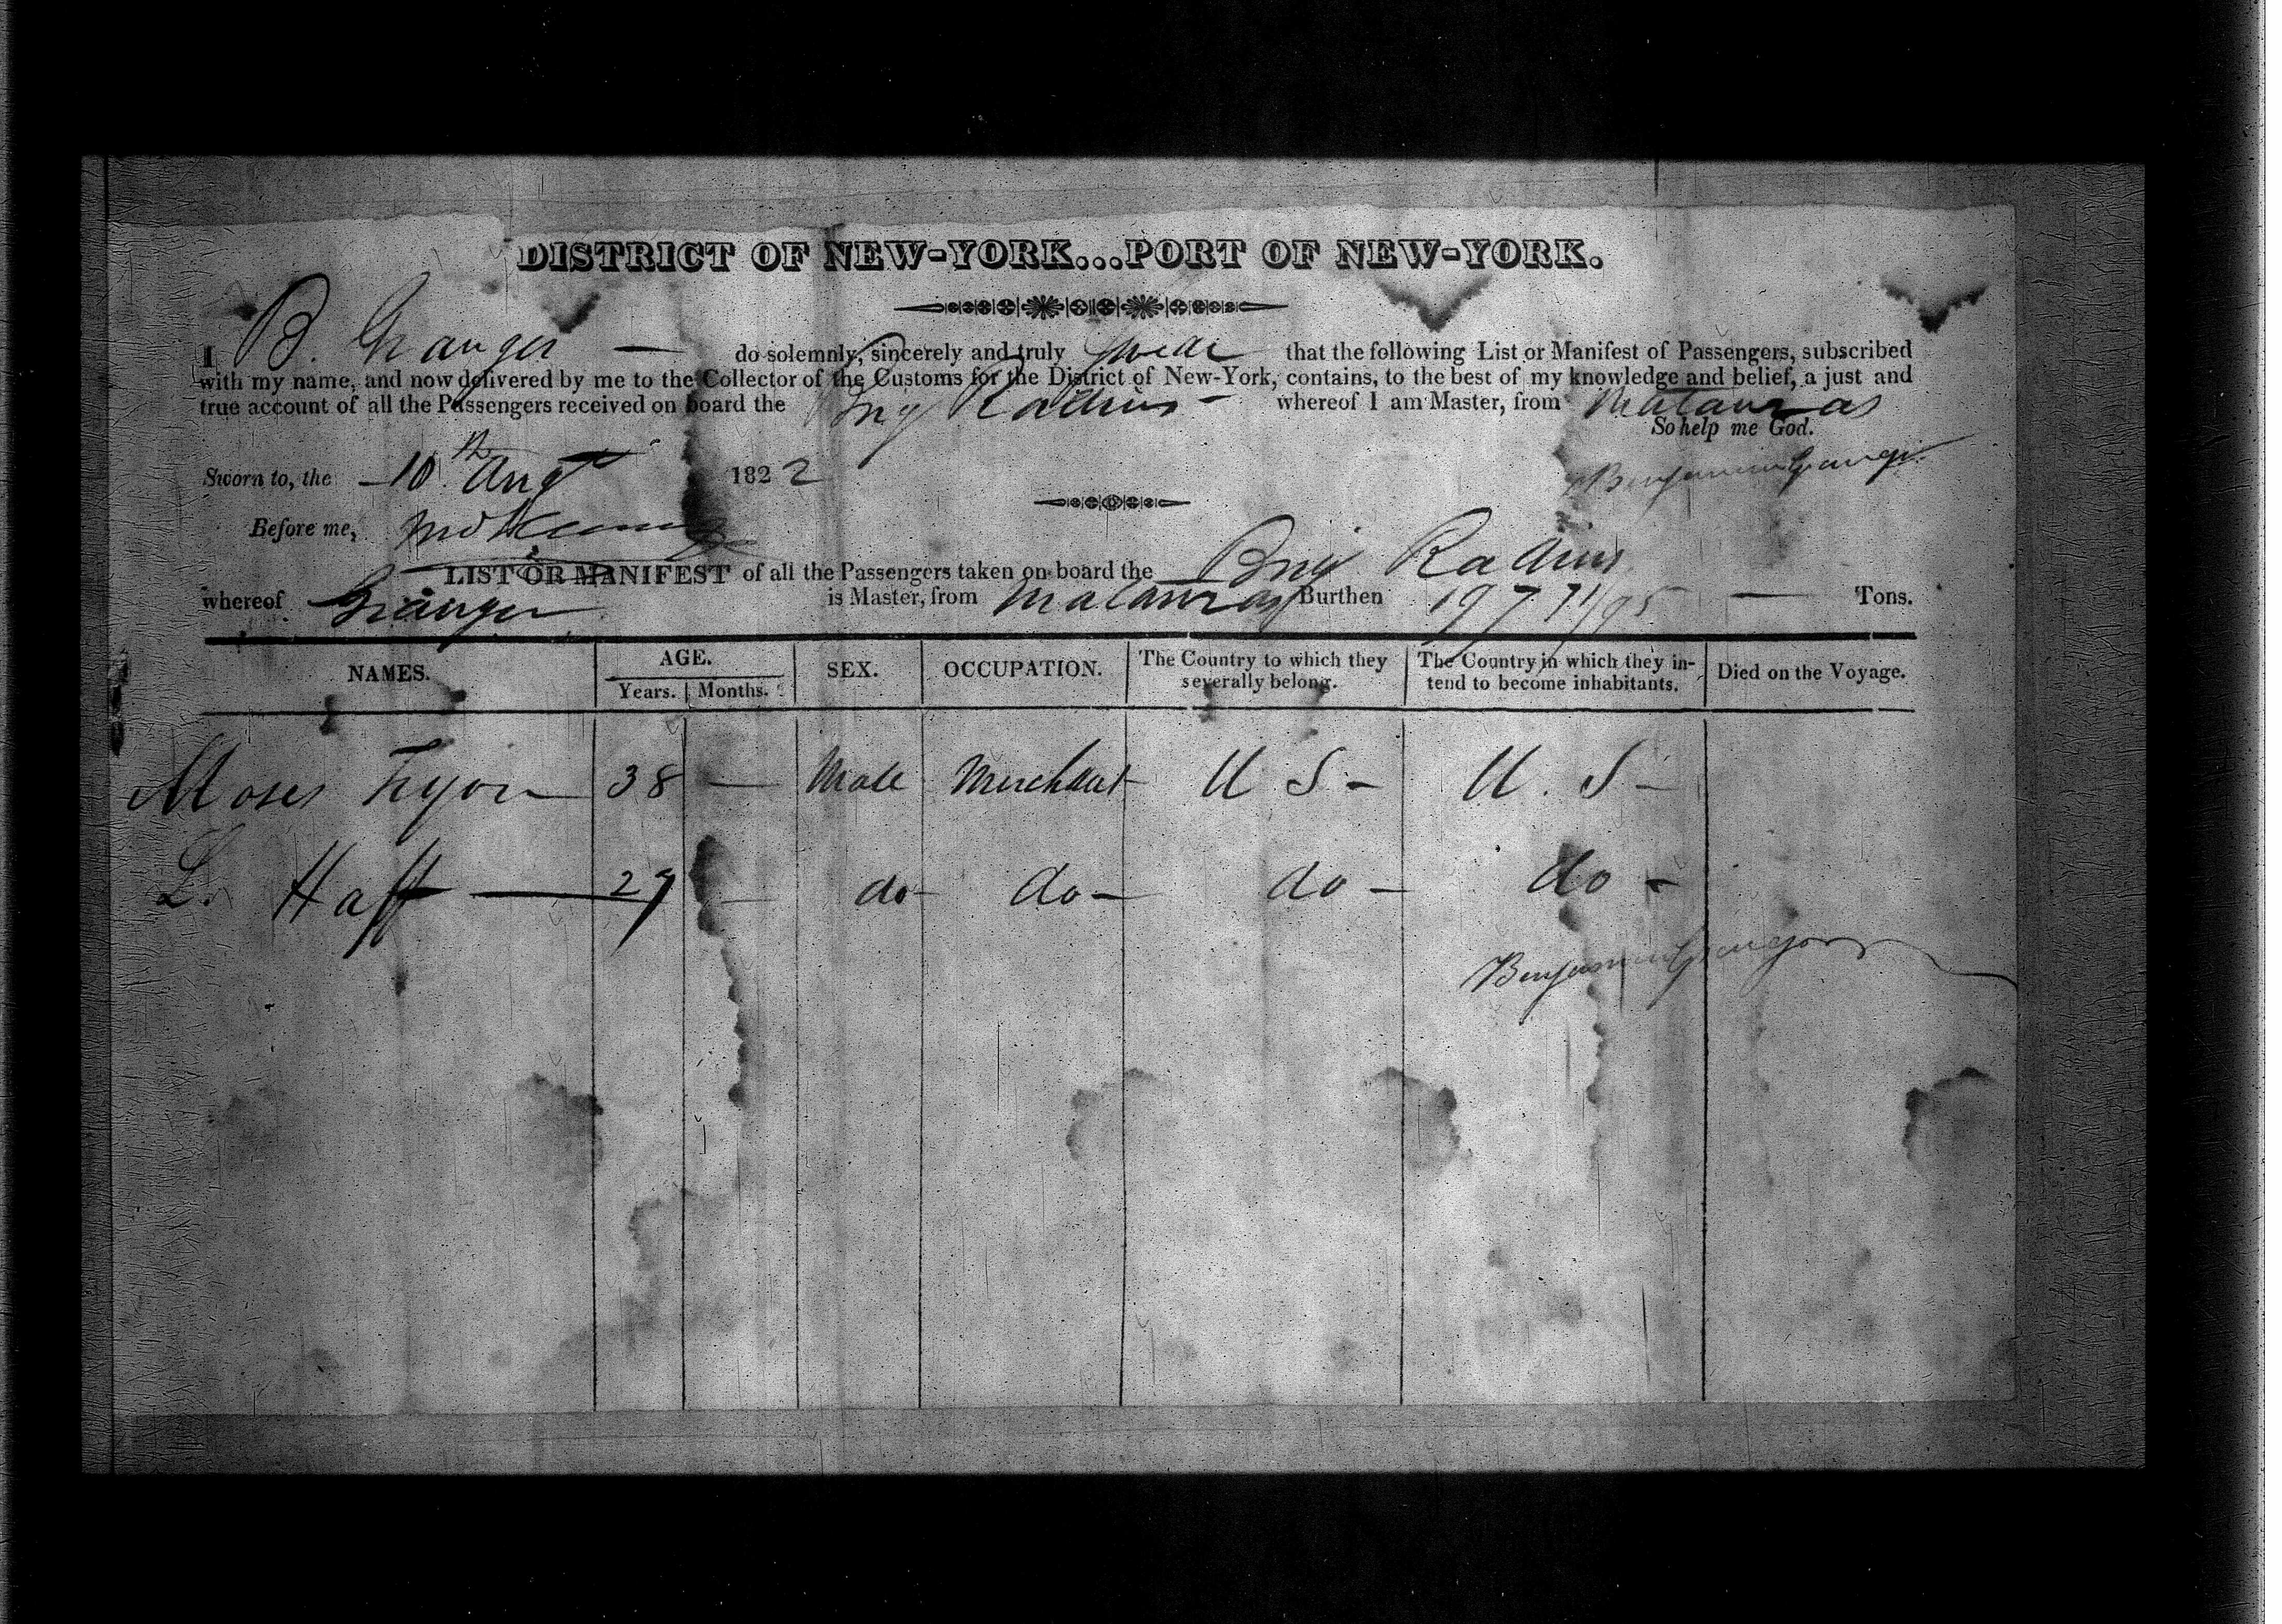 DISTRICT OF NEW-YORK...PORT OF NEW-YORK.
I B. Granger — do solemnly, sincerely and truly swear that the following List or Manifest of Passengers, subscribed
with my name, and now delivered by me to the Collector of the Customs for the District of New-York, contains, to the best of my knowledge and belief, a just and
true account of all the Passengers received on board the Brig Radius - whereof I am Master, from Matanzas
So help me God.
Sworn to, the 10th Augt 1822
Benjamin Granger
Before me,
LIST OR MANIFEST of all the Passengers taken on board the Brig Radius
whereof Granger is Master, from Matanzas Burthen 197 71/95 — Tons.
NAMES. AGE. Years. Months. SEX. OCCUPATION. The Country to which they severally belong. The Country in which they intend to become inhabitants. Died on the Voyage.
Moses Tryon 38 — Male Merchant U S - U. S -
L. Haff — 27 — do - do - do - do -
Benjamin Granger